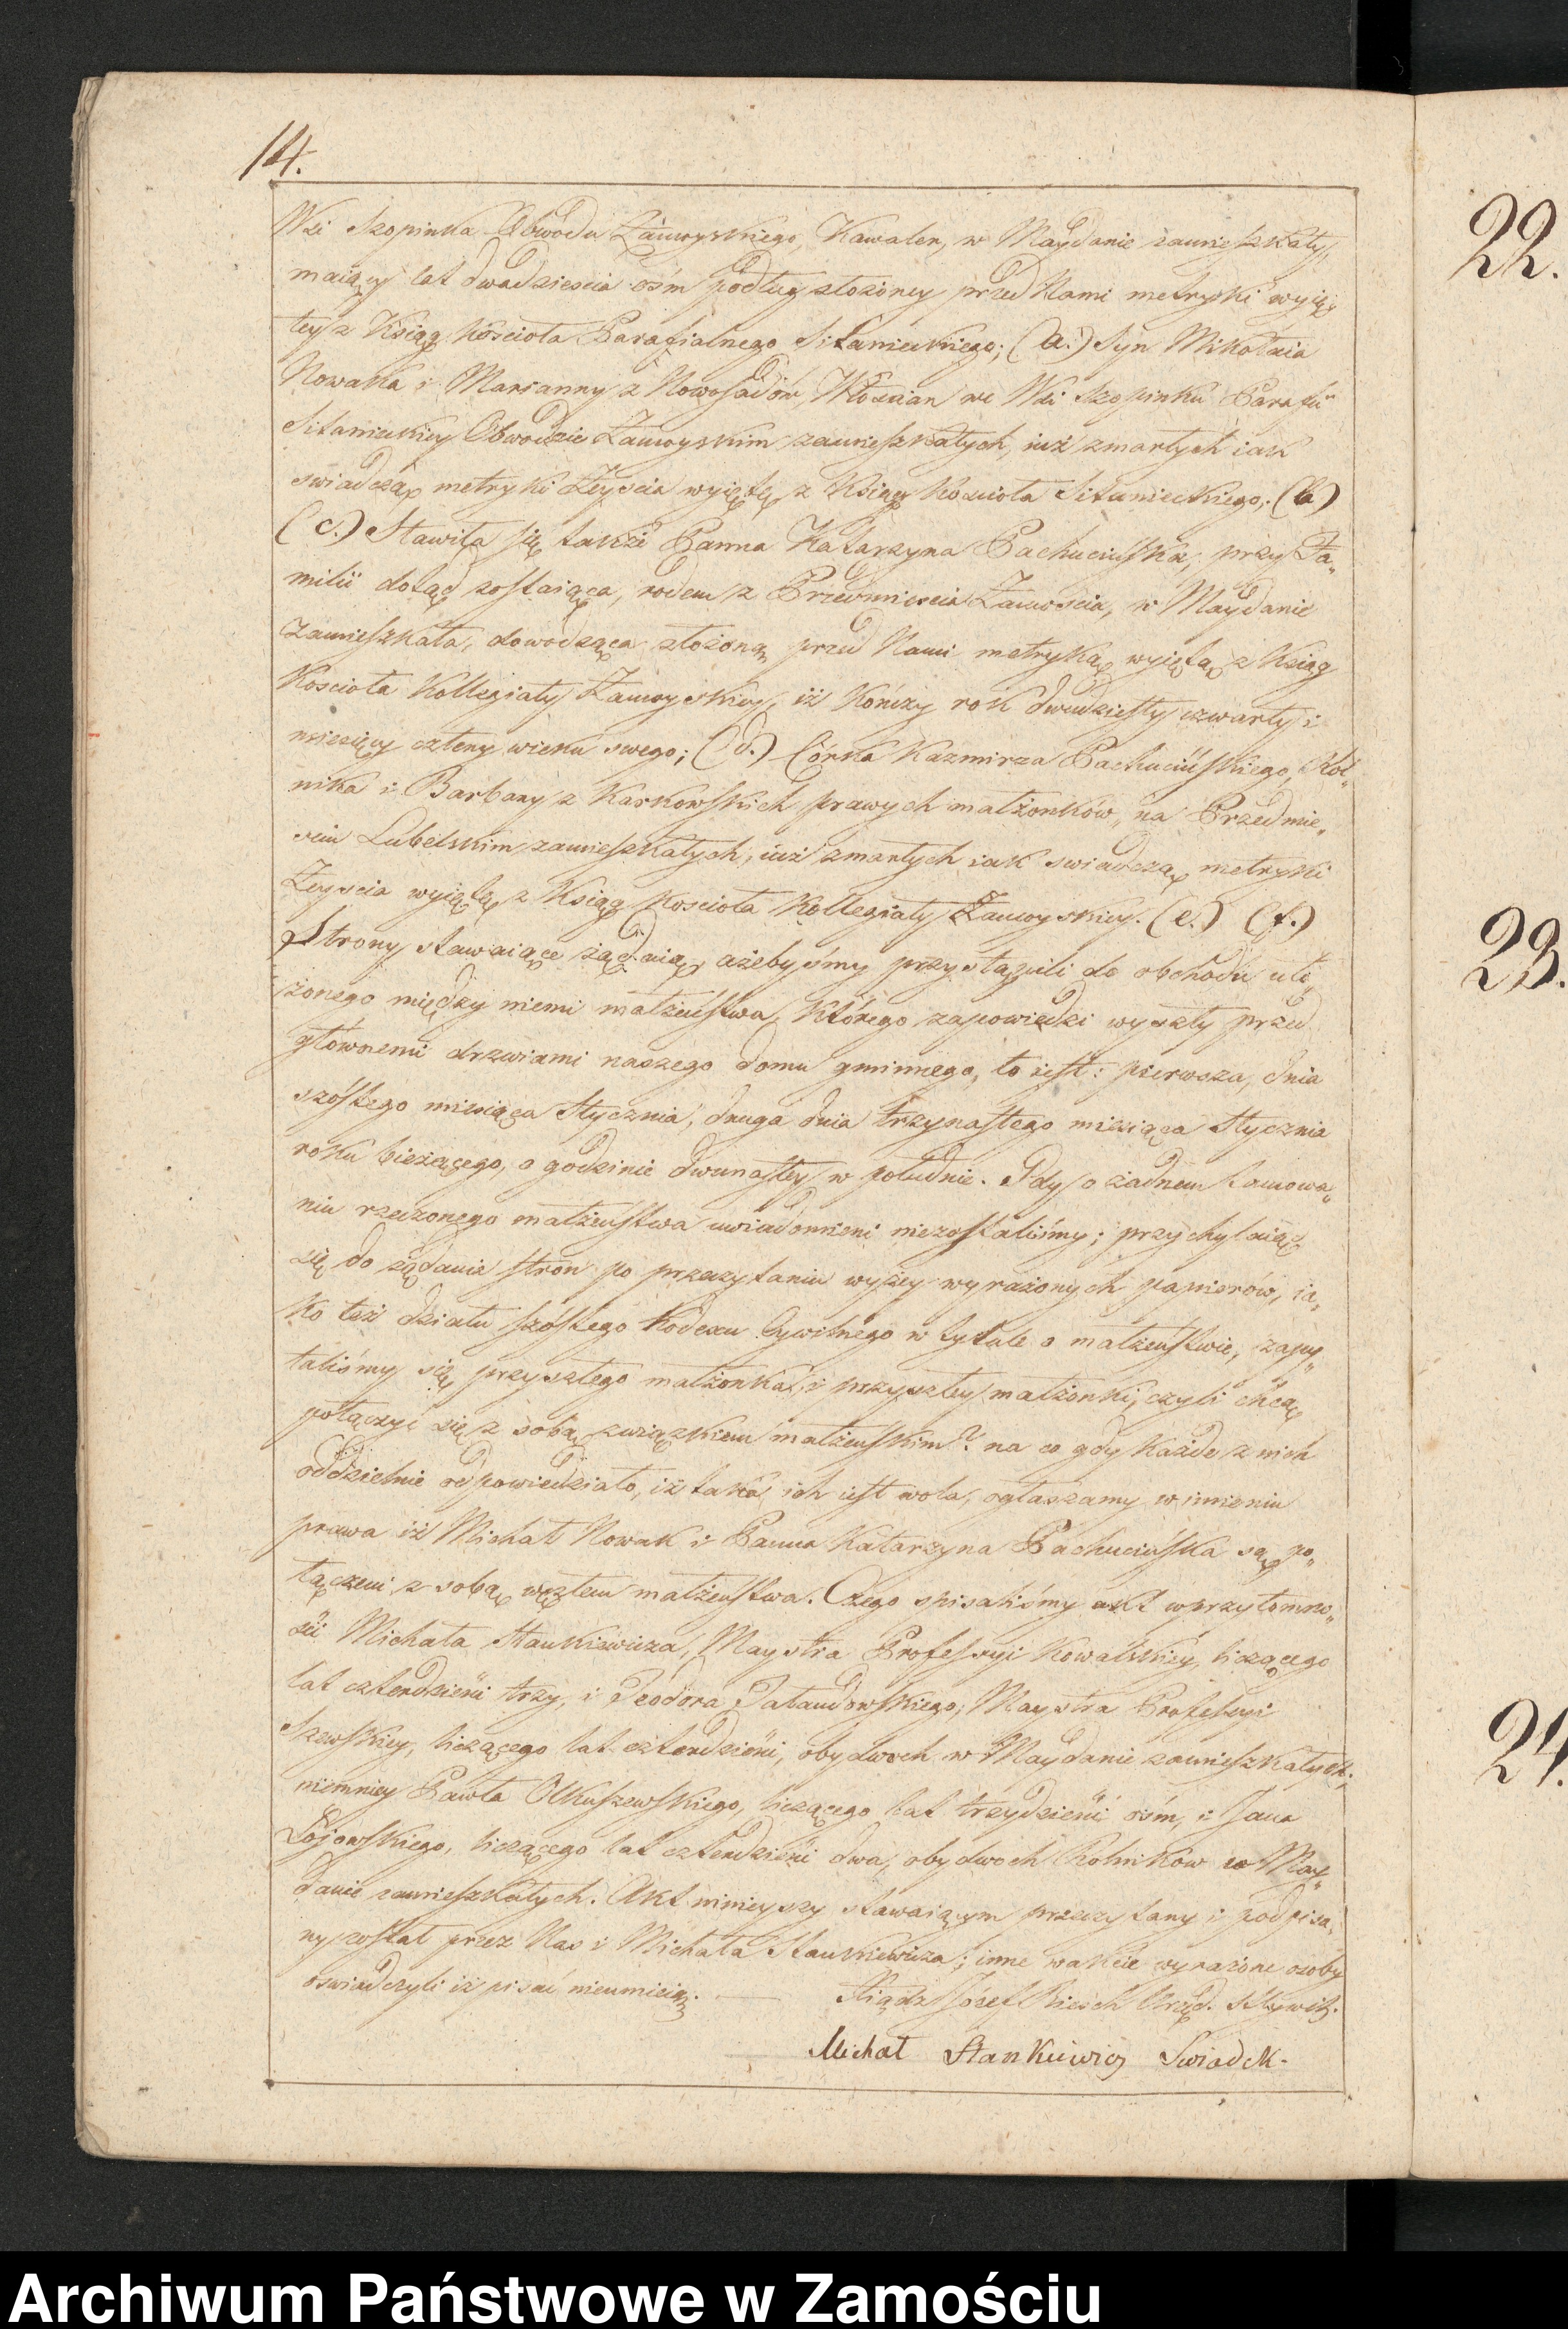 14.
Wsi Szopinka Obwodu Zamoyskiego, Kawaler, w Maydanie zamieszkały,
maiący lat dwadziescia ośm podług złożoney przed Nami metryki wyię„
tey z Ksiąg Kościoła Parafialnego Sitanieckiego; (a.) Syn Mikołaia
Nowaka i Marianny z Nowosadów, Włoscian we Wsi Szopinku Parafii
Sitanieckiey Obwodzie Zamoyskim zamieszkałych, iuż zmarłych iak
swiadczą metryki Zeyscia wyięte z Ksiąg Kosciola Sitanieckiego; (b.)
(c.) Stawiła się także Panna Katarzyna Pachucińska, przy Fa„
milii dotąd zostaiąca, rodem z Przedmiescia Zamoscia, w Maydanie
zamieszkała, dowodząca złożoną przed Nami metryką wyiętą z Ksiąg
Kosciola Kollegiaty Zamoyskiey, iż kończy rok dwudziesty czwarty i
miesięcy cztery wieku swego; (d.) Córka Kazmirza Pachucińskiego, Rol„
nika i Barbary z Karkowskich prawych małżonków, na Przedmie„
sciu Lubelskim zamieszkałych, iuż zmarłych iak swiadczą metryki
Zeyscia wyięte z Ksiąg Kosciola Kollegiaty Zamoyskiey. (e.) (f.)
Strony stawaiące żądaią, ażebyśmy przystąpili do obchodu uło„
żonego między niemi małżeństwa, którego zapowiedzi wyszły przed
głównemi drzwiami naszego domu gminnego, to iest: pierwsza, dnia
szóstego miesiąca Stycznia, druga dnia trzynastego miesiąca Stycznia
roku bieżącego, o godzinie dwunastey w południe. Gdy o żadnem tamowa„
niu rzeczonego małżeństwa uwiadomieni niezostaliśmy; przychylaiąc
się do żądania stron po przeczytaniu wyżey wyrażonych papierów, ia„
ko też działu szóstego Kodexu Cywilnego w tytule o małżeństwie, zapy„
taliśmy się przyszłego małżonka, i przyszłey małżonki, czyli chcą
połączyć się z sobą związkiem małżeńskim? na co gdy każde z nich
oddzielnie odpowiedziało, iż taka ich iest wola, ogłaszamy w imieniu
prawa iż Michał Nowak i Panna Katarzyna Pachucińska są po„
łączeni z sobą węzłem małżeństwa. Czego spisaliśmy akt wprzytomno„
ści Michała Stankiewicza, Maystra Professyi Kowalskiey, liczącego
lat czterdzieści trzy, i Teodora Maystra Professyi
Szewskiey, liczącego lat czterdzieści, obydwoch w Maydanie zamieszkałych;
niemniey Pawła Olkuszewskiego, liczącego lat trzydzieści ośm, i Jana
Łojowskiego, liczącego lat czterdzieści dwa, obydwoch Rolników w May„
danie zamieszkałych. Akt ninieyszy stawaiącym przeczytany i podpisa„
ny został przez Nas i Michała Stankiewicza; inne wakcie wyrażone osoby
oswiadczyli iż pisać nieumieią.
Xiądz Józef Urzęd. S. Cywil.
Michał Stankiewicz Swiadek.
22.
23.
24.
Archiwum Państwowe w Zamościu